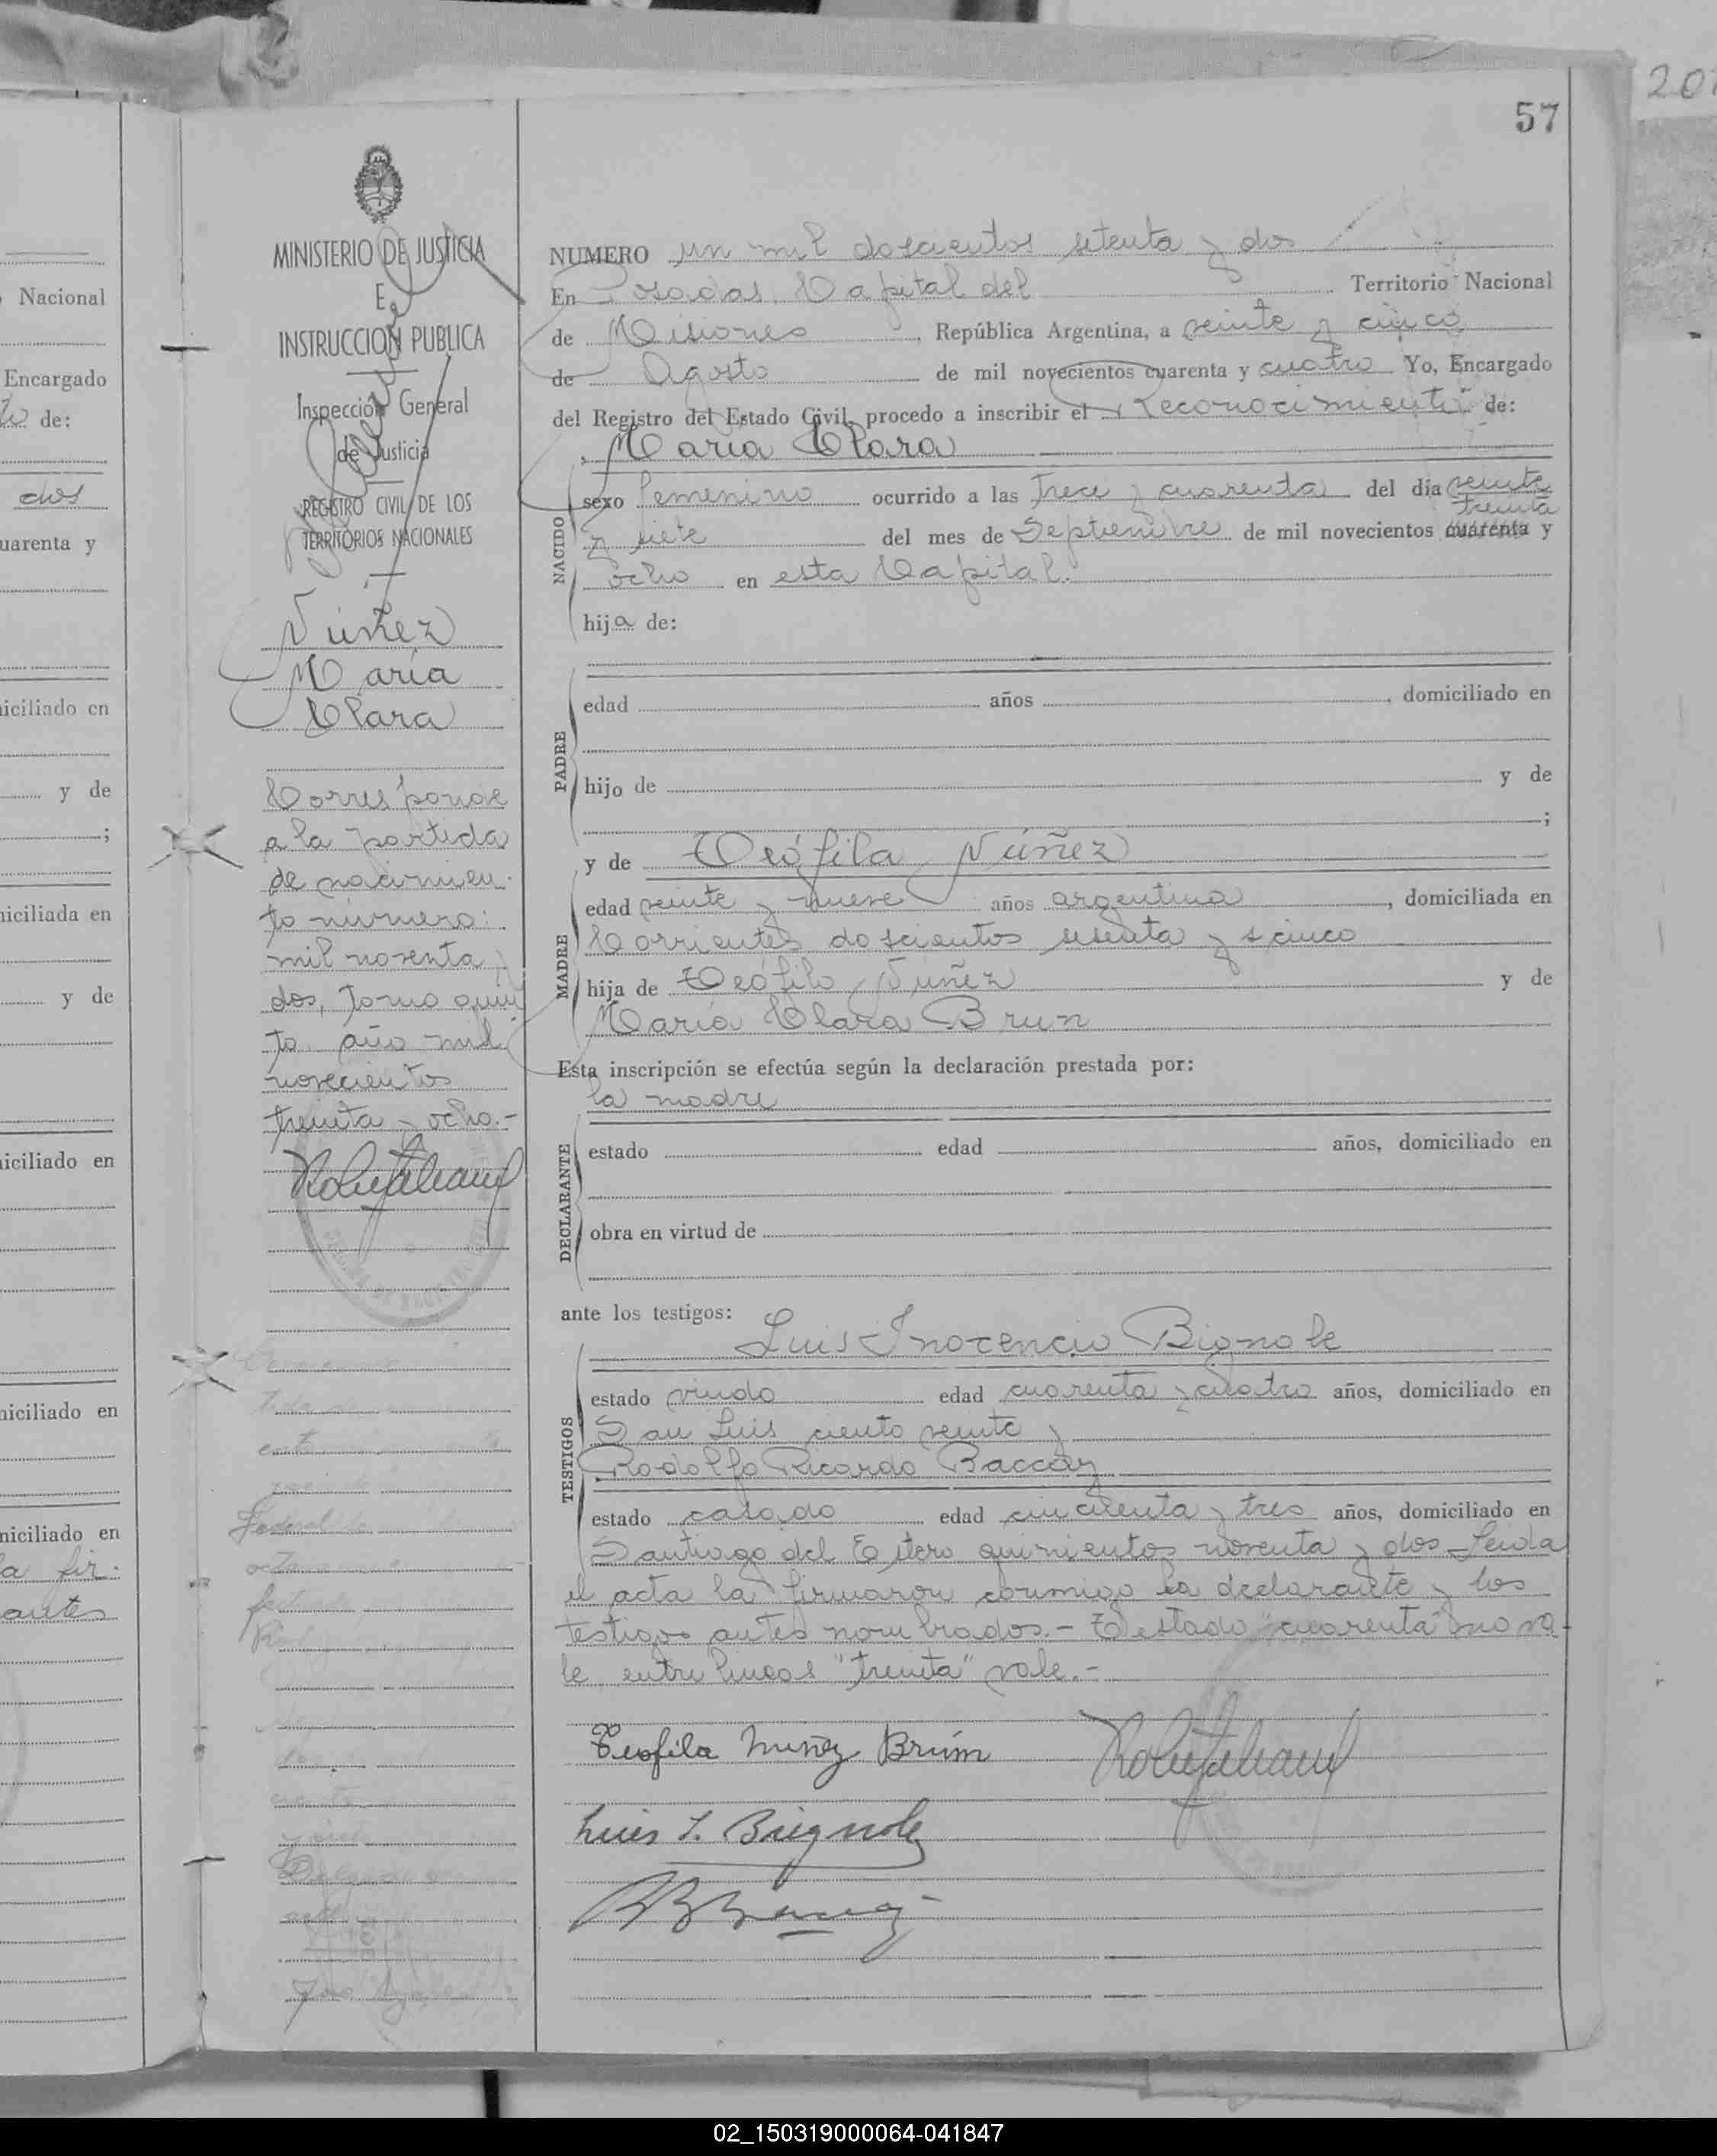 57
201
MINISTERIO DE JUSTICIA
E
INSTRUCCION PUBLICA
Inspección General
de Justicia
REGISTRO CIVIL DE LOS
TERRITORIOS NACIONALES
Núñez
María
Clara
Corresponde
a la partida
de nacimien-
to número:
mil noventa y
dos, tomo quin
to, año mil
novecientos
treinta y ocho.-
NUMERO un mil doscientos setenta y dos
En Posadas, Capital del Territorio Nacional
de Misiones, República Argentina, a veinte y cinco
de Agosto de mil novecientos cuarenta y cuatro Yo, Encargado
del Registro del Estado Civil, procedo a inscribir el "Reconocimiento" de:
María Clara
NACIDO
sexo femenino ocurrido a las trece y cuarenta del día veinte
treinta
y siete del mes de Septiembre de mil novecientos cuarenta y
ocho en esta Capital.
hija de:
PADRE
edad años , domiciliado en
hijo de y de
;
MADRE
y de Teófila Núñez
edad veinte y nueve años argentina, domiciliada en
Corrientes doscientos sesenta y cinco
hija de Teófilo Núñez y de
María Clara Brun
Esta inscripción se efectúa según la declaración prestada por:
la madre
DECLARANTE
estado edad años, domiciliado en
obra en virtud de
ante los testigos:
TESTIGOS
Luis Inocencio Bignole
estado viudo edad cuarenta y cuatro años, domiciliado en
San Luis ciento veinte y
Rodolfo Ricardo Baccay
estado casado edad cincuenta y tres años, domiciliado en
Santiago del Estero quinientos noventa y dos Leida
el acta la firmaron conmigo la declarante y los
testigos antes nombrados.- Testado "cuarenta" no va-
le, entre lineas "treinta" vale.-
Teofila Nuñez Brum
Luis I. Brignole
Nacional
Encargado
de:
dos
uarenta y
iciliado en
y de
;
niciliada en
y de
iciliado en
niciliado en
niciliado en
a fir-
antes
02_150319000064-041847